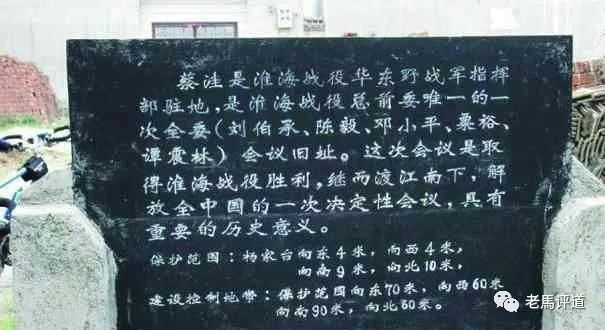 蔡洼是淮海战役华东野战军指挥
部驻地，是淮海战役总前委唯一的一
次全委（刘伯承、陈毅、邓小平、粟裕、
谭震林）会议旧址。这次会议是取
得淮海战役胜利，继而渡江南下，解
放全中国的一次决定性会议，具有
重要的历史意义。
保护范围：杨家台向东4米，向西4米，
向南9米，向北10米，
建设控制地带：保护范围向东70米，向西60米
向南90米，向北60米。
老馬评道